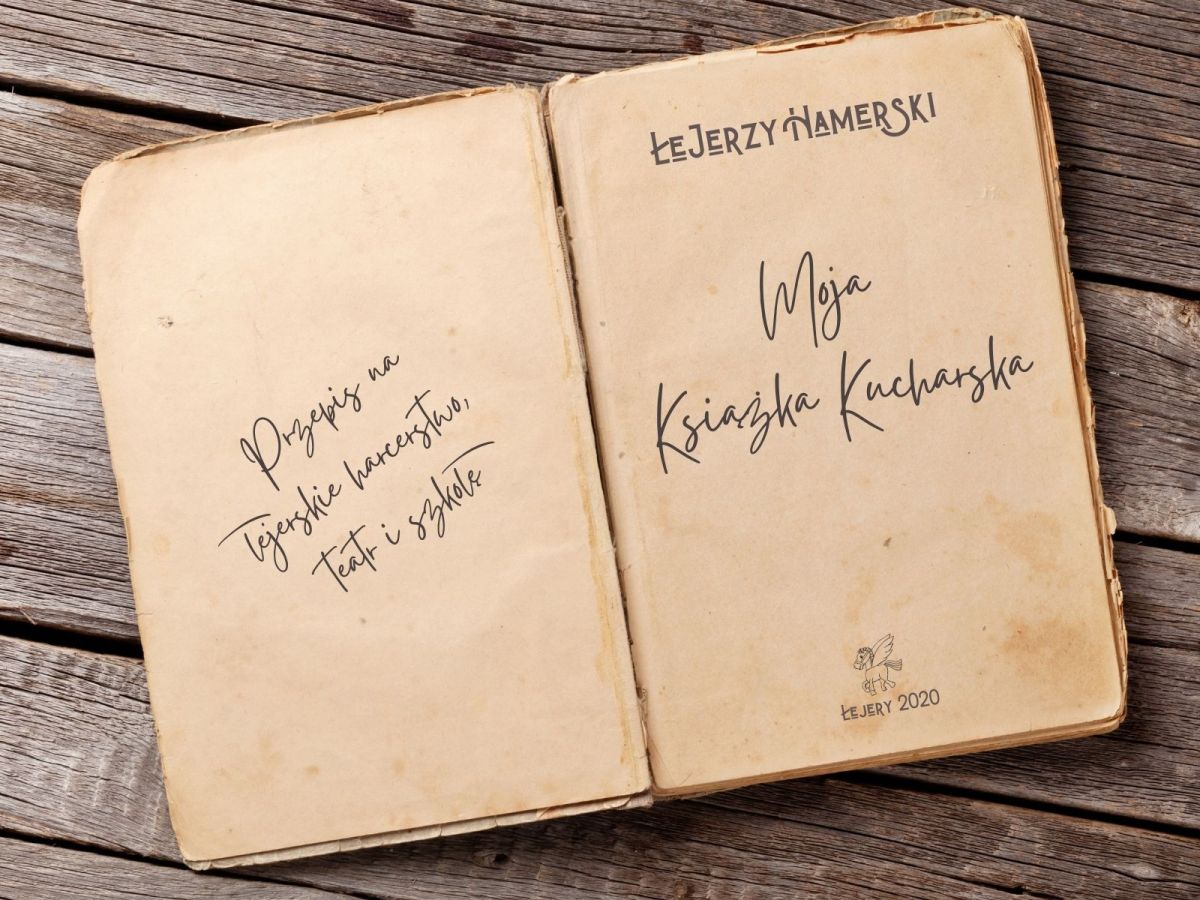 Przepis na
łejerskie harcerstwo,
teatr i szkołę
ŁEJERZY HAMERSKI
Moja
Książka Kucharska
ŁEJERY 2020